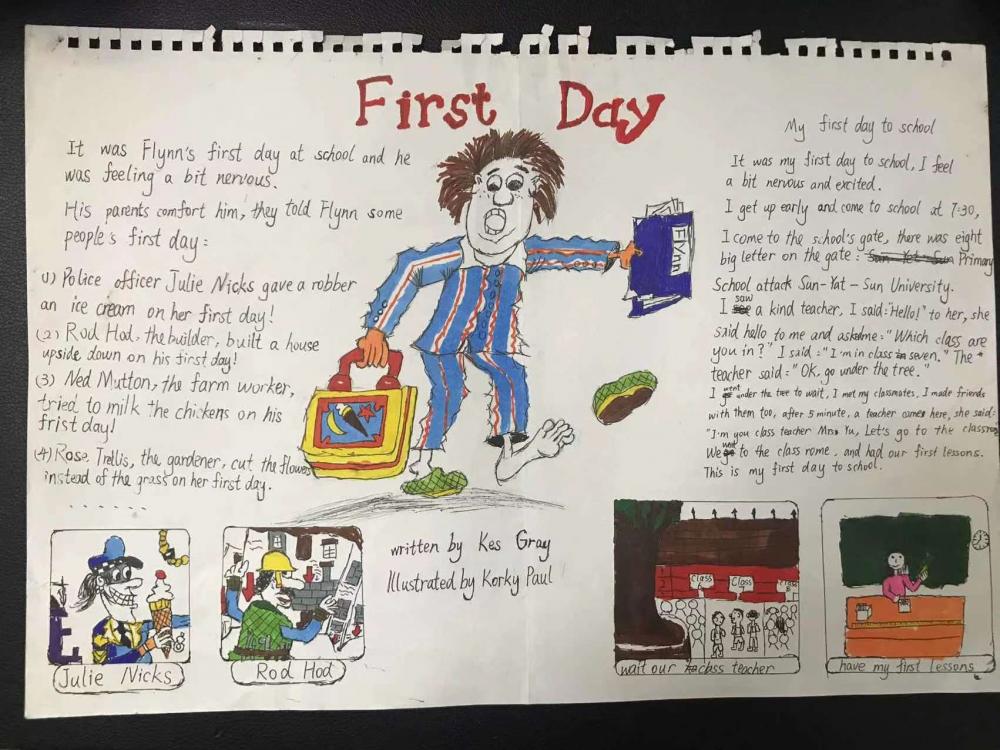 First Day
It was Flynn's first day at school and he
was feeling a bit nervous.
His parents comfort him, they told Flynn some
people's first day:
(1) Police officer Julie Nicks gave a robber
an ice cream on her first day!
(2) Rod Hod, the builder, built a house
upside down on his first day!
(3) Ned Mutton, the farm worker,
tried to milk the chickens on his
frist day!
(4) Rose Trellis, the gardener, cut the flowers
instead of the grass on her first day.
......
Flynn
My first day to school
It was my first day to school, I feel
a bit nervous and excited.
I get up early and come to school at 7:30,
I come to the school's gate, there was eight
big letter on the gate: Primary
School attack Sun-Yat-Sun University.
I saw a kind teacher, I said: "Hello!" to her, she
said hello to me and asked me: "Which class are
you in?" I said: "I'm in class seven." The
teacher said: "OK, go under the tree."
I went under the tree to wait, I met my classmates, I made friends
with them too, after 5 minute, a teacher comes here, she said:
"I'm you class teacher Mrs Yu, Let's go to the classroom
We went to the class rome, and had our first lessons.
This is my first day to school.
written by Kes Gray
Illustrated by Korky Paul
Julie Nicks
Rod Hod
Class
Class
wait our class teacher
have my first lessons